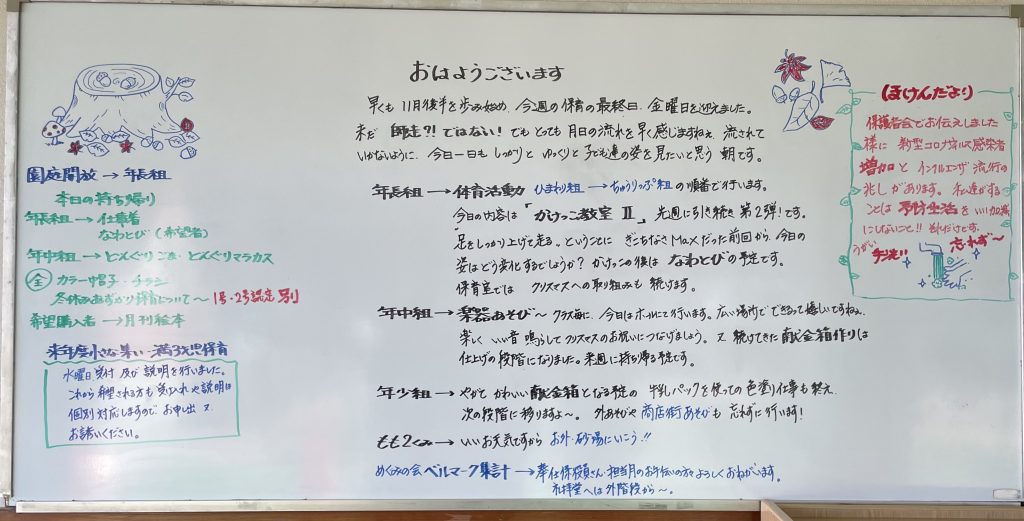 おはようございます
早くも 11月後半を歩み始め、今週の保育の最終日、金曜日を迎えました。
まだ 師走?! ではない! でも とっても 月日の流れを早く感じますねぇ 流されて
いかないように、今日一日も しっかりと ゆっくりと 子ども達の姿を見たいと思う 朝です。
園庭開放 → 年長組
本日の持ち帰り
年長組 → 仕事着
なわとび (希望者)
年中組 → どんぐりごま・どんぐりマラカス
全 カラー帽子・チラシ
冬休みあずかり保育について〜 1号・2号認定 別
希望購入者 → 月刊絵本
来年度 小さな集い 満3児保育
水曜日、受付 及び 説明を行いました。
これから希望される方も 受け入れや説明は
個別対応しますので お申し出 又
お誘いください。
年長組 → 体育活動 ひまわり組 → ちゅうりっぷ組 の順番で行います。
今日の内容は 「かけっこ教室 Ⅱ」 先週に引き続き 第2弾!です。
足をしっかり上げて走る、ということに ぎこちなさMaxだった前回から、今日の
姿はどう変化するでしょうか? かけっこの後は なわとびの予定です。
保育室では クリスマスへの取り組みも 続けます。
年中組 → 楽器あそび〜 クラス毎に、今日はホールにて行います。広い場所で できるって 嬉しいですねぇ。
楽しく いい音 鳴らして クリスマスのお祝いにつなげましょう。又 続けてきた 献金箱作りは
仕上げの段階になりました。来週に持ち帰る予定です。
年少組 → やがて かわいい 献金箱となる予定の 牛乳パックを使っての 色塗り仕事も終え、
次の段階に移りますよ〜。 外あそびや 商店街あそびも 忘れずに行います!
もも2くみ → いいお天気ですから お外・砂場にいこう!!
めぐみの会 ベルマーク集計 → 奉仕係役員さん・担当月のお手伝いの方々 よろしく おねがいします。
礼拝堂へは 外階段から〜。
ほけんだより
保護者会でお伝えしました
様に 新型コロナウイルス感染者
増加と インフルエンザ流行の
兆しがあります。私達がする
ことは 予防生活を いい加減
にしないこと!! それだけです。
うがい
手洗い
忘れず〜